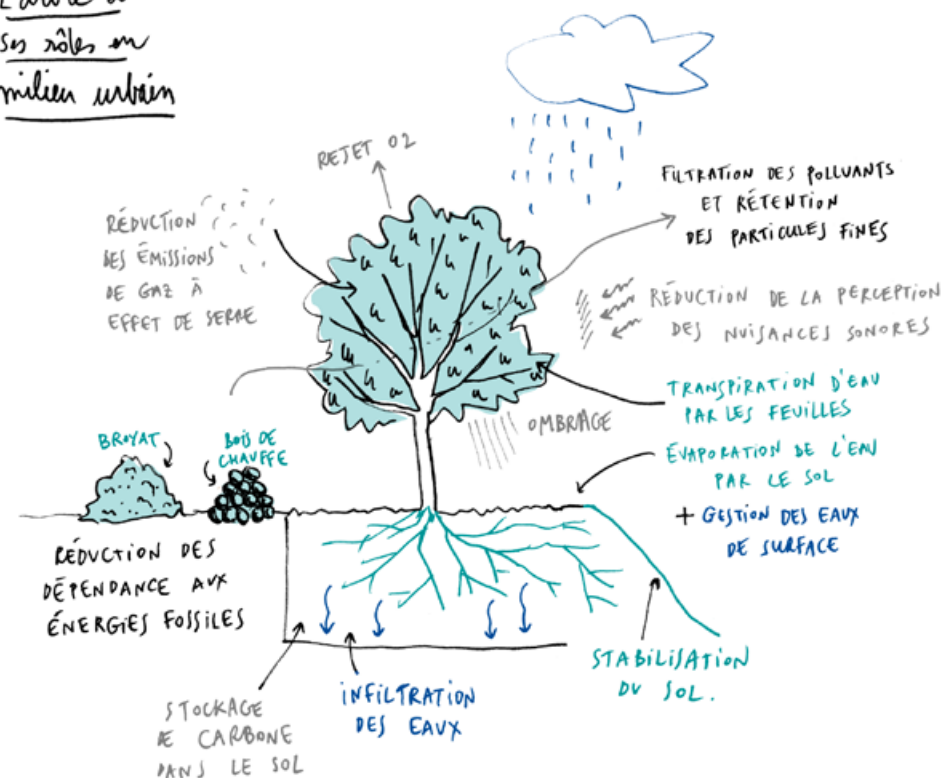 L'arbre &
ses rôles en
milieu urbain
REJET O2
RÉDUCTION
DES ÉMISSIONS
DE GAZ À
EFFET DE SERRE
FILTRATION DES POLLUANTS
ET RÉTENTION
DES PARTICULES FINES
RÉDUCTION DE LA PERCEPTION
DES NUISANCES SONORES
TRANSPIRATION D'EAU
PAR LES FEUILLES
OMBRAGE
ÉVAPORATION DE L'EAU
PAR LE SOL
+ GESTION DES EAUX
DE SURFACE
BROYAT
BOIS DE
CHAUFFE
RÉDUCTION DES
DÉPENDANCE AUX
ÉNERGIES FOSSILES
STOCKAGE
DE CARBONE
DANS LE SOL
INFILTRATION
DES EAUX
STABILISATION
DU SOL.